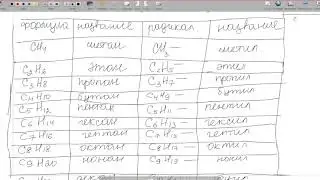 формула название радикал название
CH4 метан CH3— метил
C2H6 этан C2H5— этил
C3H8 пропан C3H7— пропил
C4H10 бутан C4H9— бутил
C5H12 пентан C5H11— пентил
C6H14 гексан C6H13— гексил
C7H16 гептан C7H15— гептил
C8H18 октан C8H17— октил
C9H20 нонан C9H19— нонил